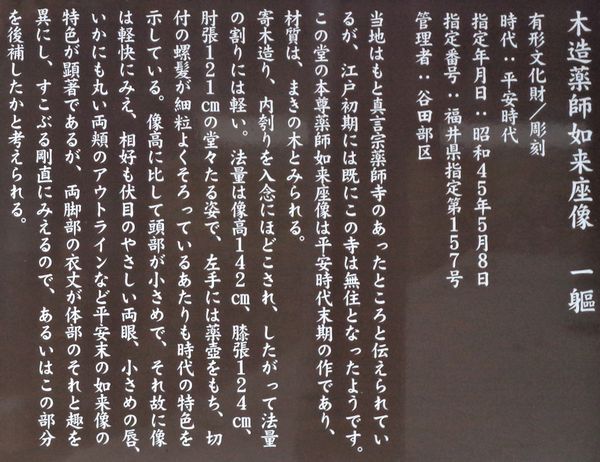 木造薬師如来座像　一軀
有形文化財／彫刻
時代：平安時代
指定年月日：昭和45年5月8日
指定番号：福井県指定第157号
管理者：谷田部区
当地はもと真言宗薬師寺のあったところと伝えられてい
るが、江戸初期には既にこの寺は無住となったようです。
この堂の本尊薬師如来座像は平安時代末期の作であり、
材質は、まきの木とみられる。
寄木造り、内刳りを入念にほどこされ、したがって法量
の割りには軽い。法量は像高142cm、膝張124cm、
肘張121cmの堂々たる姿で、左手には薬壺をもち、切
付の螺髪が細粒よくそろっているあたりも時代の特色を
示している。像高に比して頭部が小さめで、それ故に像
は軽快にみえ、相好も伏目のやさしい両眼、小さめの唇、
いかにも丸い両頬のアウトラインなど平安末の如来像の
特色が顕著であるが、両脚部の衣丈が体部のそれと趣を
異にし、すこぶる剛直にみえるので、あるいはこの部分
を後補したかと考えられる。